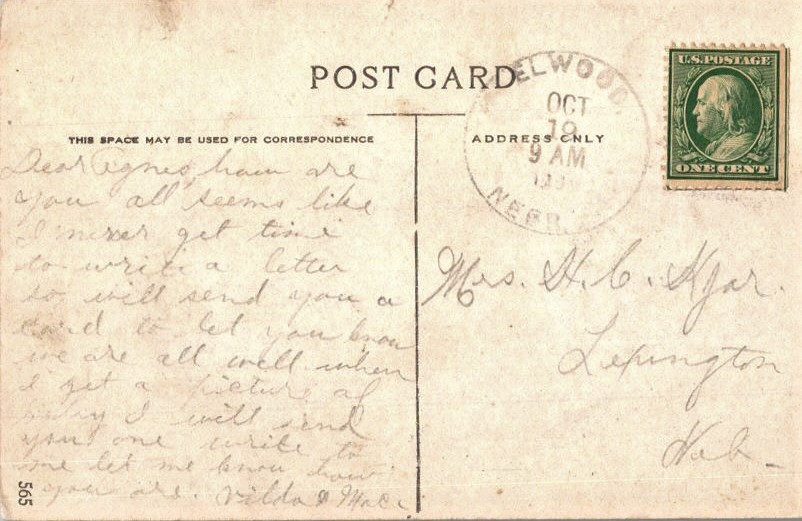 POST CARD
ELWOOD,
OCT
19
9 AM
NEBR.
U.S. POSTAGE
ONE CENT
THIS SPACE MAY BE USED FOR CORRESPONDENCE
ADDRESS ONLY
Dear Agnes, how are
you all seems like
I never get time
to write a letter
so will send you a
card to let you know
we are all well when
I get a picture of
I will send
you one write to
me let me know how
you are. Vilda &
Mrs. H. C. Kjar.
Lexington
Neb
565